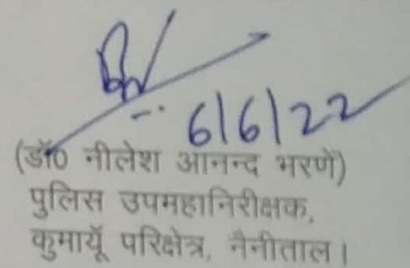 6/6/22
(डॉ0 नीलेश आनन्द भरणें)
पुलिस उपमहानिरीक्षक,
कुमायूँ परिक्षेत्र, नैनीताल।